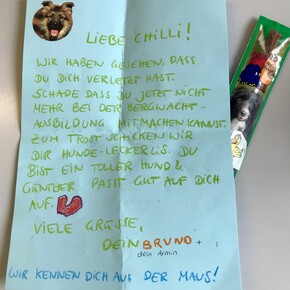 LIEBE CHILLI!
WIR HABEN GESEHEN, DASS
DU DICH VERLETZT HAST.
SCHADE DASS DU JETZT NICHT
MEHR BEI DER BERGWACHT-
AUSBILDUNG MITMACHEN KANNST.
ZUM TROST SCHICKEN WIR
DIR HUNDE-LECKERLIS. DU
BIST EIN TOLLER HUND &
GÜNTHER PASST GUT AUF DICH
AUF.
VIELE GRÜSSE,
DEIN BRUNO +
dein Armin
WIR KENNEN DICH AUS DER MAUS!